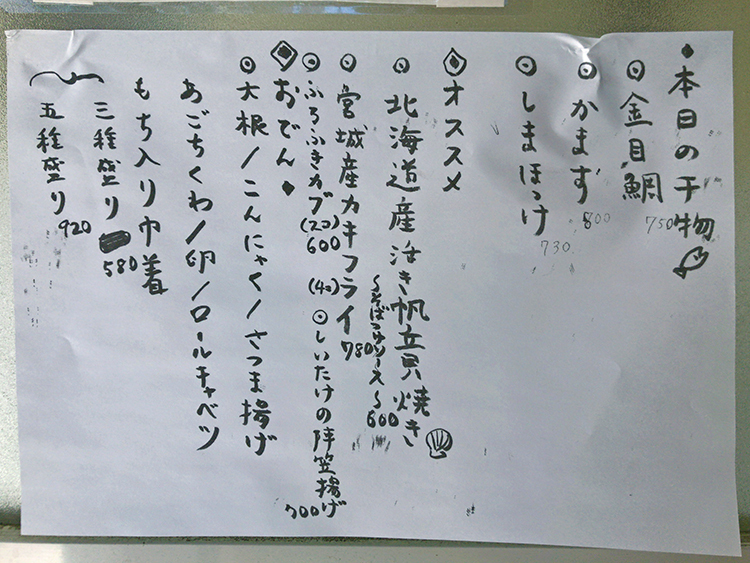 本日の干物
金目鯛 750
かます 800
しまほっけ 730
オススメ
北海道産活き帆立貝焼き
〜そばつゆソース〜 600
宮城産カキフライ (4コ) 780
ふろふきカブ (2コ) 600
しいたけの陣笠揚げ 700
おでん
大根/こんにゃく/さつま揚げ
あごちくわ/卵/ロールキャベツ
もち入り巾着
三種盛り 580
五種盛り 920